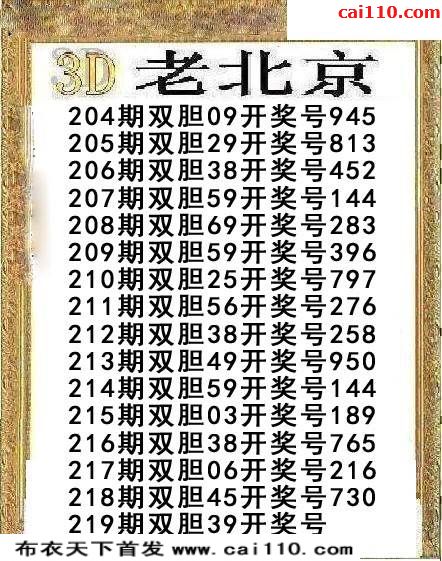 cai110.com
3D 老北京
204期双胆09开奖号945
205期双胆29开奖号813
206期双胆38开奖号452
207期双胆59开奖号144
208期双胆69开奖号283
209期双胆59开奖号396
210期双胆25开奖号797
211期双胆56开奖号276
212期双胆38开奖号258
213期双胆49开奖号950
214期双胆59开奖号144
215期双胆03开奖号189
216期双胆38开奖号765
217期双胆06开奖号216
218期双胆45开奖号730
219期双胆39开奖号
布衣天下首发 www.cai110.com